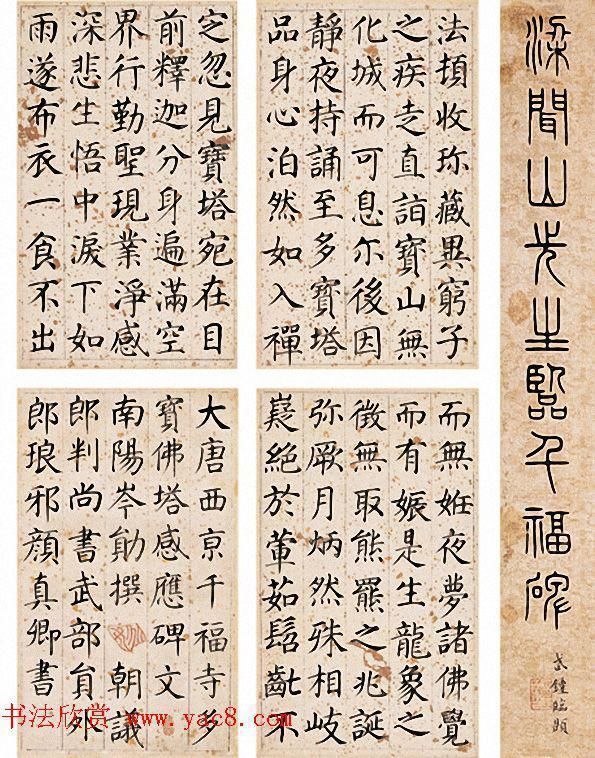 梁聞山先生臨千福碑
法頂收珎藏異窮子
之疾走直詣寶山無
化城而可息尒後因
靜夜持誦至多寶塔
品身心泊然如入禪
定忽見寶塔宛在目
前釋迦分身遍滿空
界行勤聖現業淨感
深悲生悟中淚下如
雨遂布衣一食不出
而無姙夜夢諸佛覺
而有娠是生龍象之
徵無取熊羆之兆誕
弥厥月炳然殊相岐
嶷絕於葷茹髫齔不
大唐西京千福寺多
寶佛塔感應碑文
南陽岑勛撰 朝議
郎判尚書武部員外
郎琅邪顏真卿書
书法欣赏 www.yac8.com